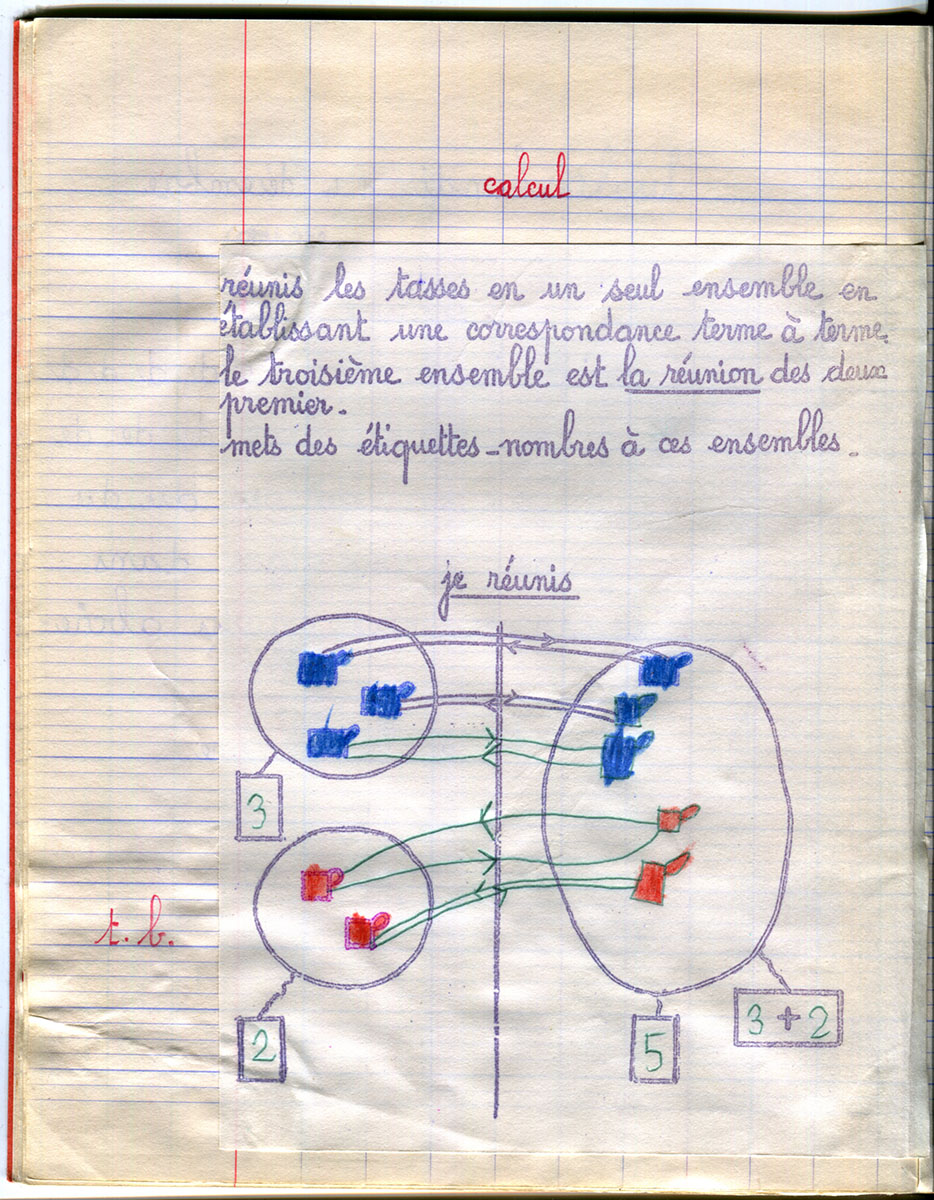 calcul
réunis les tasses en un seul ensemble en
établissant une correspondance terme à terme.
le troisième ensemble est la réunion des deux
premier.
mets des étiquettes-nombres à ces ensembles.
je réunis
3
t. b.
2
5
3 + 2